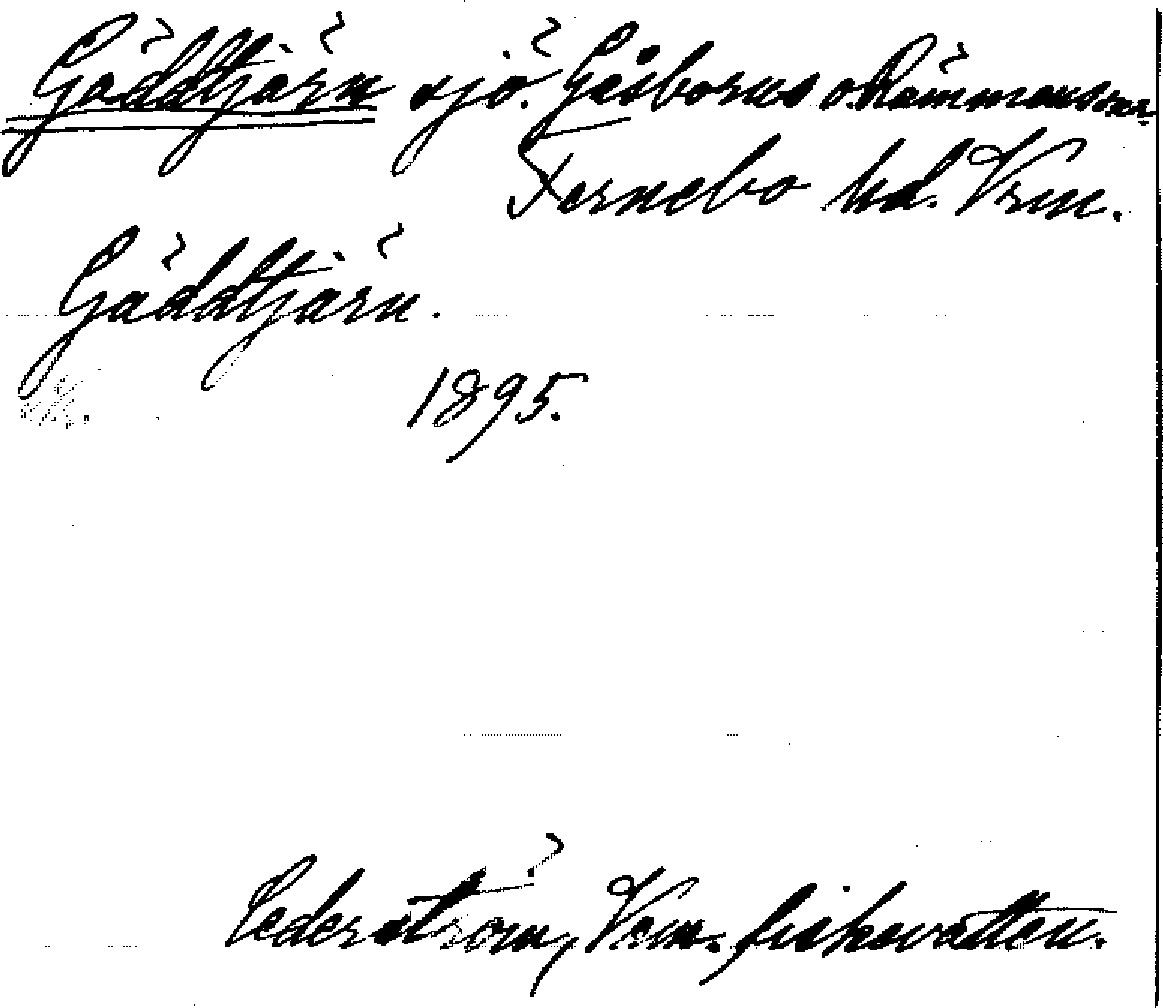 Gäddtjärn sjö. Gåsborns o. Rämmens snr
Fernebo hd. Vrm.
Gäddtjärn.
1895.
Cederström, Verm. fiskevatten.